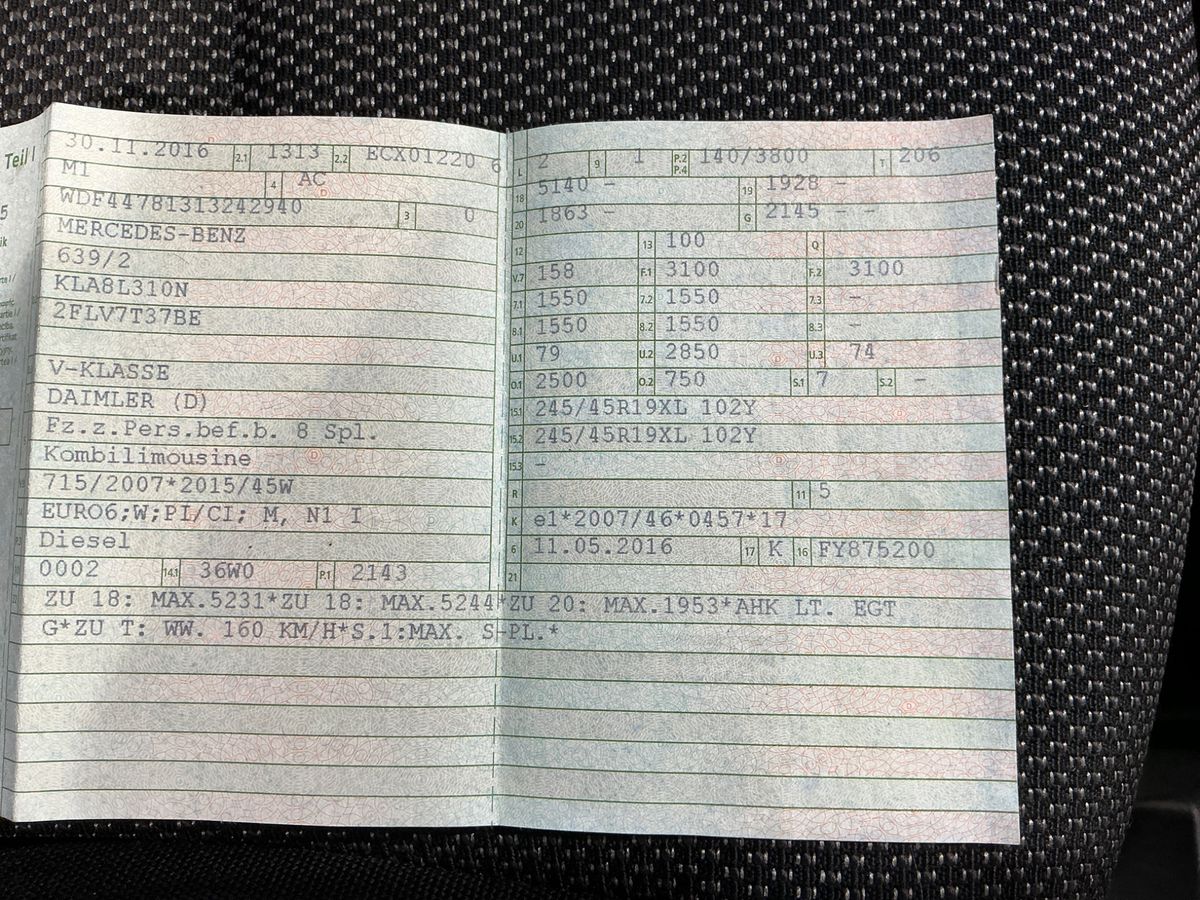 Teil I
30.11.2016 2.1 1313 2.2 ECX01220 6
M1 4 AC
WDF44781313242940 3 0
MERCEDES-BENZ
639/2
KLA8L310N
2FLV7T37BE
V-KLASSE
DAIMLER (D)
Fz.z.Pers.bef.b. 8 Spl.
Kombilimousine
715/2007*2015/45W
EURO6;W;PI/CI; M, N1 I
Diesel
0002 14.1 36W0 P.1 2143
L 2 9 1 P.2 P.4 140/3800 T 206
18 5140 - 19 1928 -
20 1863 - G 2145 - -
12 13 100 Q
V.7 158 F.1 3100 F.2 3100
7.1 1550 7.2 1550 7.3 -
8.1 1550 8.2 1550 8.3 -
U.1 79 U.2 2850 U.3 74
O.1 2500 O.2 750 S.1 7 S.2 -
15.1 245/45R19XL 102Y
15.2 245/45R19XL 102Y
15.3 -
R 11 5
K e1*2007/46*0457*17
6 11.05.2016 17 K 16 FY875200
21
ZU 18: MAX.5231*ZU 18: MAX.5244*ZU 20: MAX.1953*AHK LT. EGT
G*ZU T: WW. 160 KM/H*S.1:MAX. S-PL.*